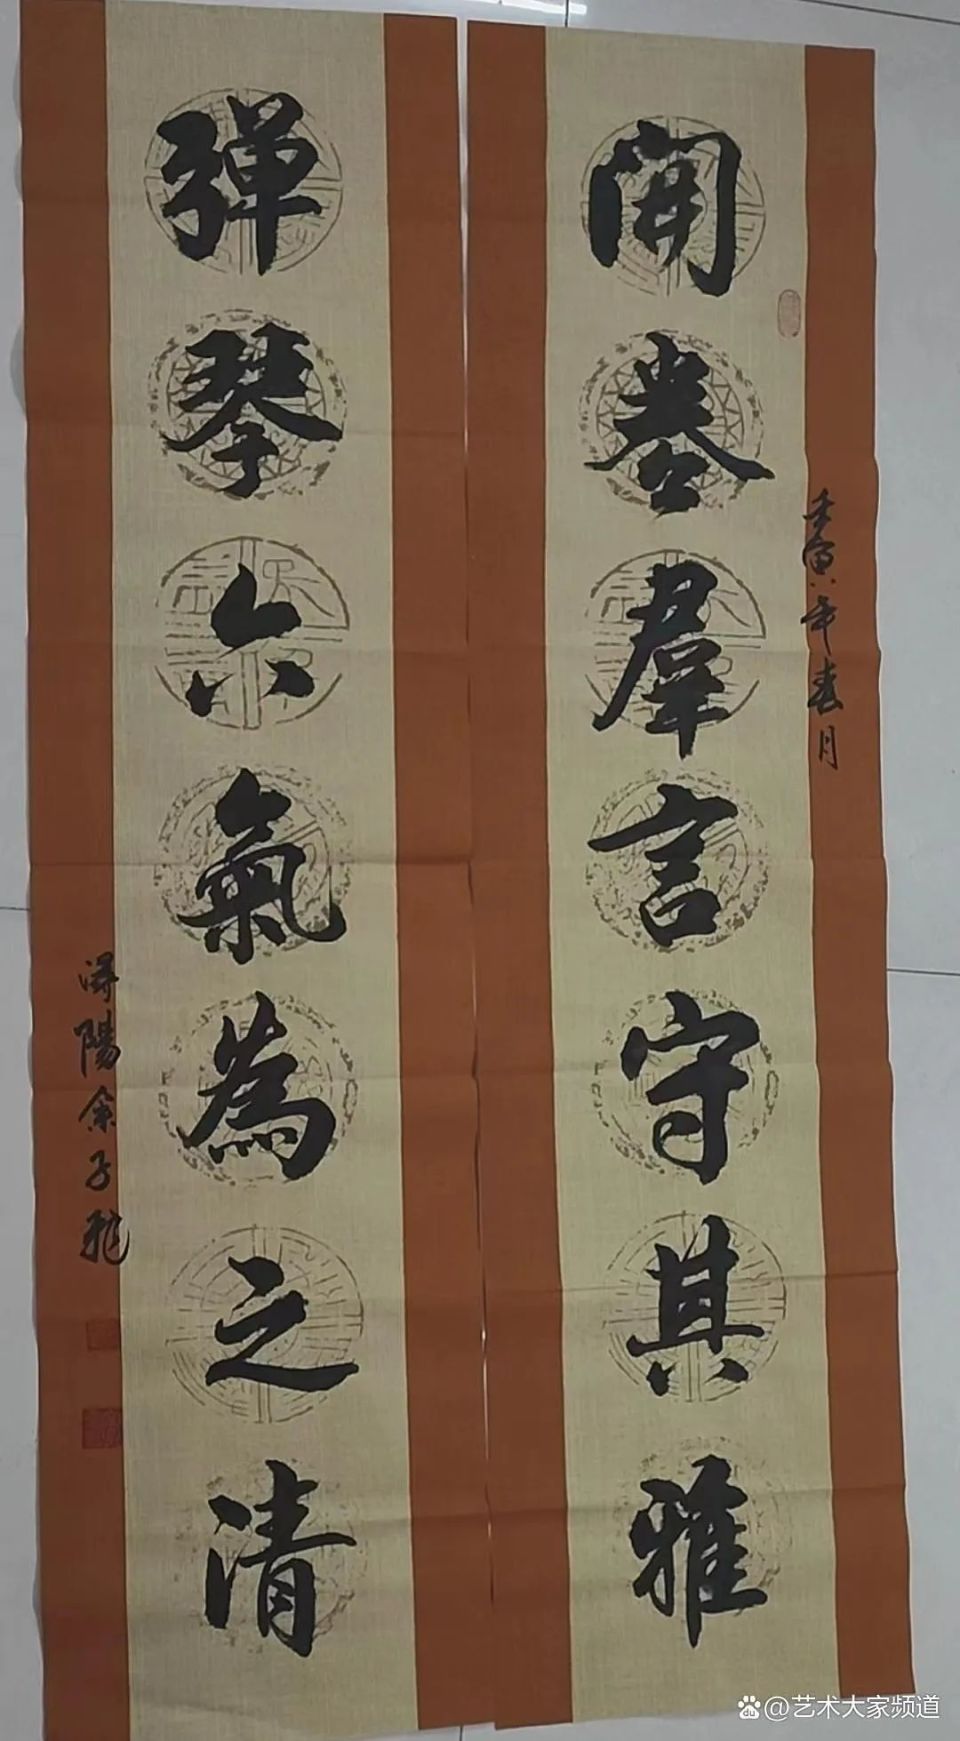 開卷羣言守其雅
壬寅年春月
彈琴六氣為之清
潯陽余子龍
@艺术大家频道